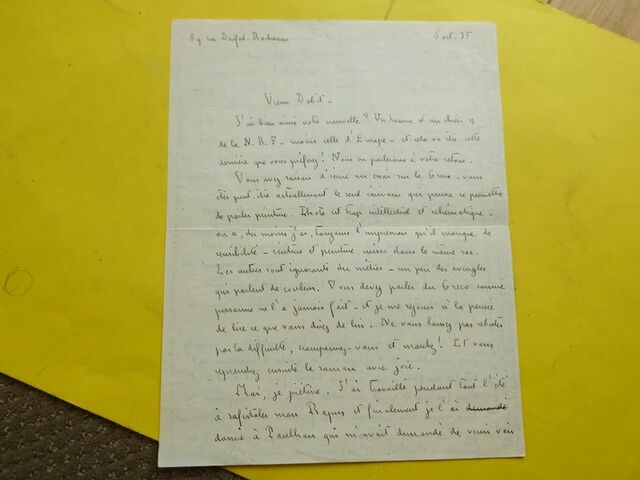 89 rue Denfert-Rochereau 6 oct. 35
Vieux Dabit -
J'ai bien aimé votre nouvelle "Un homme et un chien"
de la N.R.F. - moins celle d'Europe - et cela va être cette
dernière que vous préférez ! Nous en parlerons à votre retour.
Vous avez raison d'écrire un essai sur le Greco - vous
êtes peut-être actuellement le seul écrivain qui puisse se permettre
de parler peinture. Lhote est trop intellectuel et schématique -
on a, du moins j'ai, toujours l'impression qu'il manque de
sensibilité - écriture et peinture mises dans le même sac.
Les autres sont ignorants du métier - un peu des aveugles
qui parlent de couleurs. Vous devez parler du Greco comme
personne ne l'a jamais fait - et je me réjouis à la pensée
de lire ce que vous direz de lui. Ne vous laissez pas rebuter
par la difficulté, cramponnez-vous et montez ! Et vous
reprendrez ensuite le roman avec joie.
Moi, je piétine. J'ai travaillé pendant tout l'été
à rafistoler mon Ragus et finalement je l'ai demandé
donné à Paulhan qui m'avait demandé de venir voir